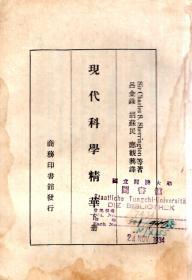 Sir Charles S. Sherrington 等著
呂金錄 胡蘇民 應觀興譯
現代科學精華 下冊
商務印書館發行
國立同濟大學
圖書館
Staatliche Tungchi-Universität
DIE BIBLIOTHEK
24 NOV. 1934